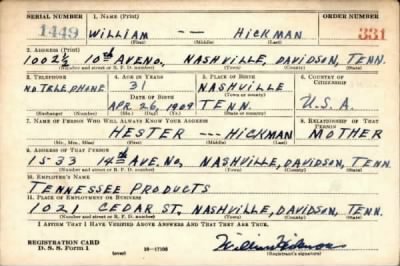 SERIAL NUMBER 1. NAME (Print) ORDER NUMBER
1449 WILLIAM --- HICKMAN 331
(First) (Middle) (Last)
2. ADDRESS (Print)
1002½ 10th AVENO, NASHVILLE, DAVIDSON, TENN.
(Number and street or R. F. D. number) (Town) (County) (State)
3. TELEPHONE 4. AGE IN YEARS 5. PLACE OF BIRTH 6. COUNTRY OF CITIZENSHIP
NO. TELEPHONE 31 NASHVILLE
DATE OF BIRTH (Town or county)
APR. 26, 1909 TENN. U.S.A.
(Exchange) (Number) (Mo.) (Day) (Yr.) (State or country)
7. NAME OF PERSON WHO WILL ALWAYS KNOW YOUR ADDRESS 8. RELATIONSHIP OF THAT PERSON
HESTER --- HICKMAN MOTHER
(Mr., Mrs., Miss) (First) (Middle) (Last)
9. ADDRESS OF THAT PERSON
15-33 14th AVE. NO, NASHVILLE, DAVIDSON, TENN.
(Number and street or R. F. D. number) (Town) (County) (State)
10. EMPLOYER'S NAME
TENNESSEE PRODUCTS
11. PLACE OF EMPLOYMENT OR BUSINESS
1021 CEDAR ST. NASHVILLE, DAVIDSON, TENN.
(Number and street or R. F. D. number) (Town) (County) (State)
I AFFIRM THAT I HAVE VERIFIED ABOVE ANSWERS AND THAT THEY ARE TRUE.
REGISTRATION CARD William Hickman
D. S. S. Form 1 (over) 16—17105 (Registrant's signature)